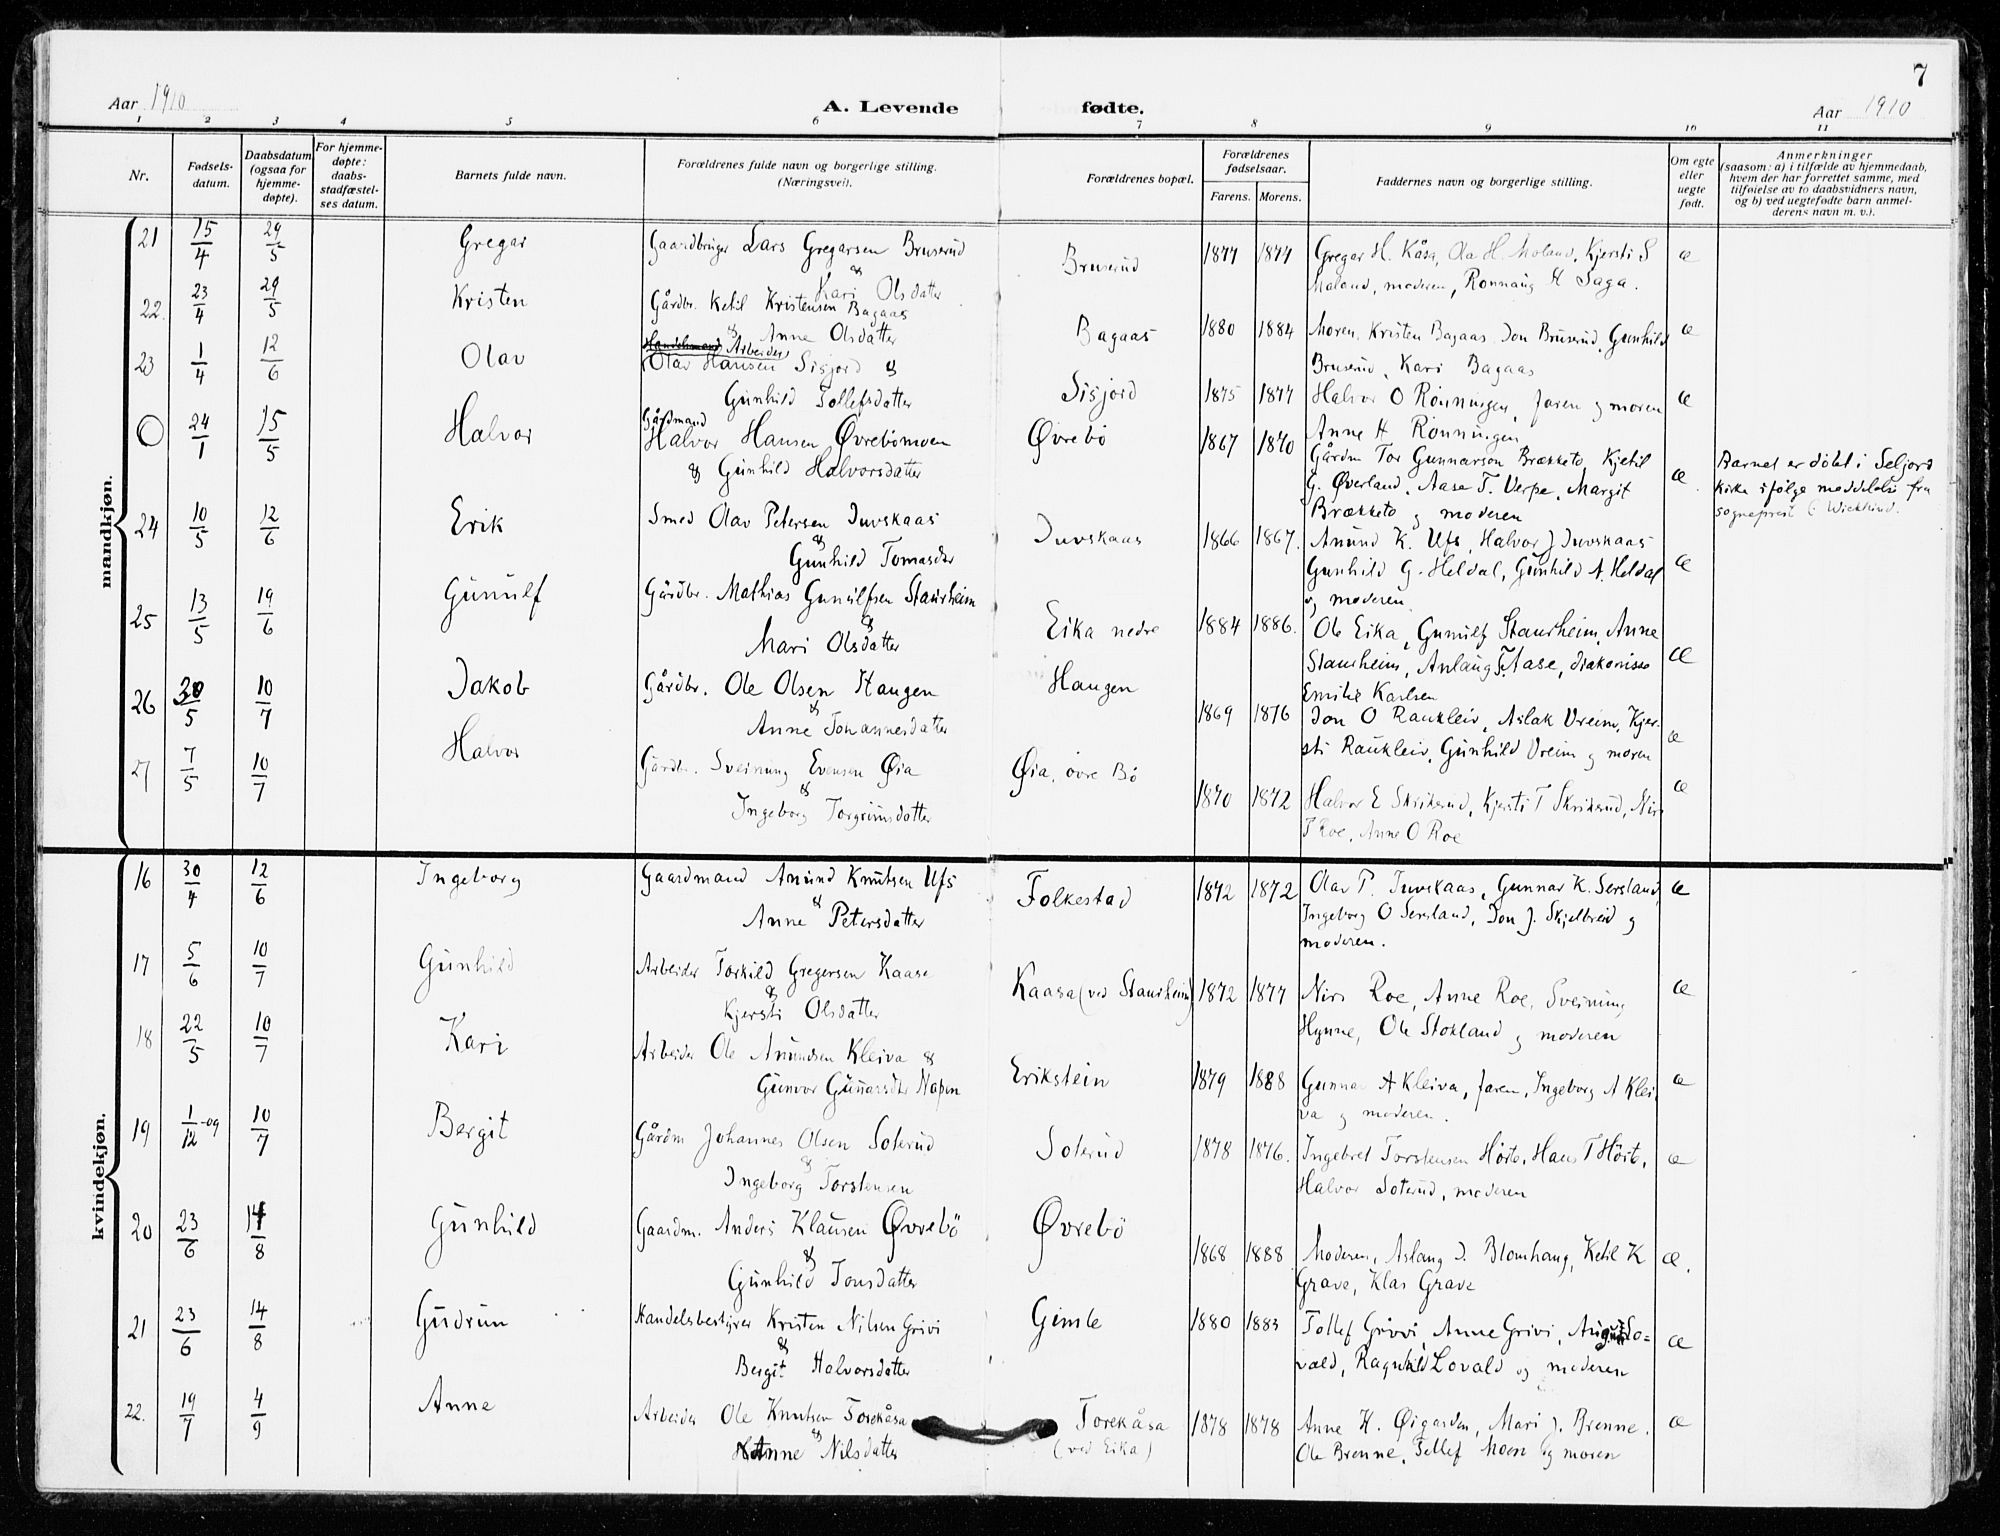 7
Aar 1910
A. Levende
fødte.
Aar 1910
1 2 3 4 5 6 7 8 9 10 11
Nr.
Fødsels-
datum.
Daabsdatum
(ogsaa for
hjemme-
døpte).
For hjemme-
døpte:
daabs-
stadfæstel-
ses datum.
Barnets fulde navn.
Forældrenes fulde navn og borgerlige stilling.
(Næringsvei).
Forældrenes bopæl.
Forældrenes
fødselsaar.
Farens. Morens.
Faddernes navn og borgerlige stilling.
Om egte
eller
uegte
født.
Anmerkninger
(saasom: a) i tilfælde av hjemmedaab,
hvem der har forrettet samme, med
tilføielse av to daabsvidners navn,
og b) ved uegtefødte barn anmel-
derens navn m. v.).
mandkjøn.
21 15/4 29/5 Gregar Gaardbruger Lars Gregarsen Bruserud Bruserud 1877 1877 Gregar H. Kåsa, Ola H. Moland, Kjersti S æ
& Kari Olsdatter Moland, moderen, Ronnaug H Saga.
22. 23/4 29/5 Kristen Gårdbr. Ketil Kristensen Bagaas Bagaas 1880 1884 Moren, Kristen Bagaas, Jon Bruserud, Gunhild æ
& Anne Olsdatter Bruserud, Kari Bagaas
23 1/4 12/6 Olav Handelsmand Arbeider
Olav Hansen Sisjord & Sisjord 1875 1877 Halvor O Rönningen, faren og moren æ
Gunhild Tollefsdatter Anne H Rönningen
0 24/1 15/5 Halvor Gårdmand
Halvor Hansen Øvrebömoen Øvrebö 1867 1870 Gårdm Tor Gunnarson Brækketo, Kjetil æ.
& Gunhild Halvorsdatter G. Øverland, Aase T. Verpe, Margit
Brækketo og moderen
Barnet er döbt i Seljord
kirke ifölge meddelelse fra
sogneprest
24 10/5 12/6 Erik Smed Olav Petersen Juvskaas Juvskaas 1866 1867. Anund K. Ufs, Halvor J Juvskaas æ
& Gunhild Tomasdtr Gunhild G. Heldal, Gunhild A. Heldal
og moderen.
25 13/5 19/6 Gunulf Gårdbr. Mathias Gunulfsen Staurheim Eika nedre 1884 1886. Ole Eika, Gunulf Staurheim, Anne æ
& Mari Olsdatter Staurheim, Aslaug T. Aase, diakonisse
Emilie Karlsen
26 30/5 10/7 Jakob Gårdbr. Ole Olsen Haugen Haugen 1869 1876 Jon O Raukleiv, Aslak Vreim, Kjer- æ
& Anne Johannesdatter sti Raukleiv, Gunhild Vreim og moren
27 7/5 10/7 Halvor Gårdbr. Sveinung Evensen Øia Øia, övre Bö 1870 1872 Halvor E Skriksrud, Kjersti T Skriksrud, Nirs æ
& Ingeborg Torgrimsdatter T Roe, Anne O Roe
kvindekjøn.
16 30/4 12/6 Ingeborg Gaardmand Anund Knutsen Ufs Folkestad 1872 1872 Olav P. Juvskaas, Gunnar K. Sersland, æ
& Anne Petersdatter Ingeborg O Sersland, Jon J. Skjelbreid og
moderen.
17 5/6 10/7 Gunhild Arbeider Torkild Gregersen Kaase Kaasa (ved Staurheim) 1872 1877 Nirs Roe, Anne Roe, Sveinung æ
& Kjersti Olsdatter Hynne, Ole Stokland og moderen
18 22/5 10/7 Kari Arbeider Ole Anundsen Kleiva & Erikstein 1879 1888 Gunnar A Kleiva, faren, Ingeborg A Klei- æ
Gunvor Gunarsdtr Napen va og moderen.
19 1/12-09 10/7 Bergit Gårdm Johannes Olsen Soterud Soterud 1878 1876. Ingebret Torstensen Hörte, Hans T Hörte, æ
& Ingeborg Torstensen Halvor Soterud, moderen
20 23/6 14/8 Gunhild Gaardm. Anders Klausen Øvrebö Øvrebö 1868 1888 Moderen, Aslaug J. Blomhaug, Ketil K æ.
& Gunhild Jonsdatter Grave, Klas Grave
21 23/6 14/8 Gudrun Handelsbestyrer Kristen Nilsen Grivi Gimle 1880 1883 Tollef Grivi, Anne Grivi, August Lo= æ
& Bergit Halvorsdatter vald, Ragnhild Lovald og moderen
22. 19/7 4/9 Anne Arbeider Ole Knutsen Torekåsa Torekåsa 1878 1878 Anne H. Øigarden, Mari J. Brenne. æ
& Anne Nilsdatter (ved Eika) Ole Brenne, Tellef Moen og moren